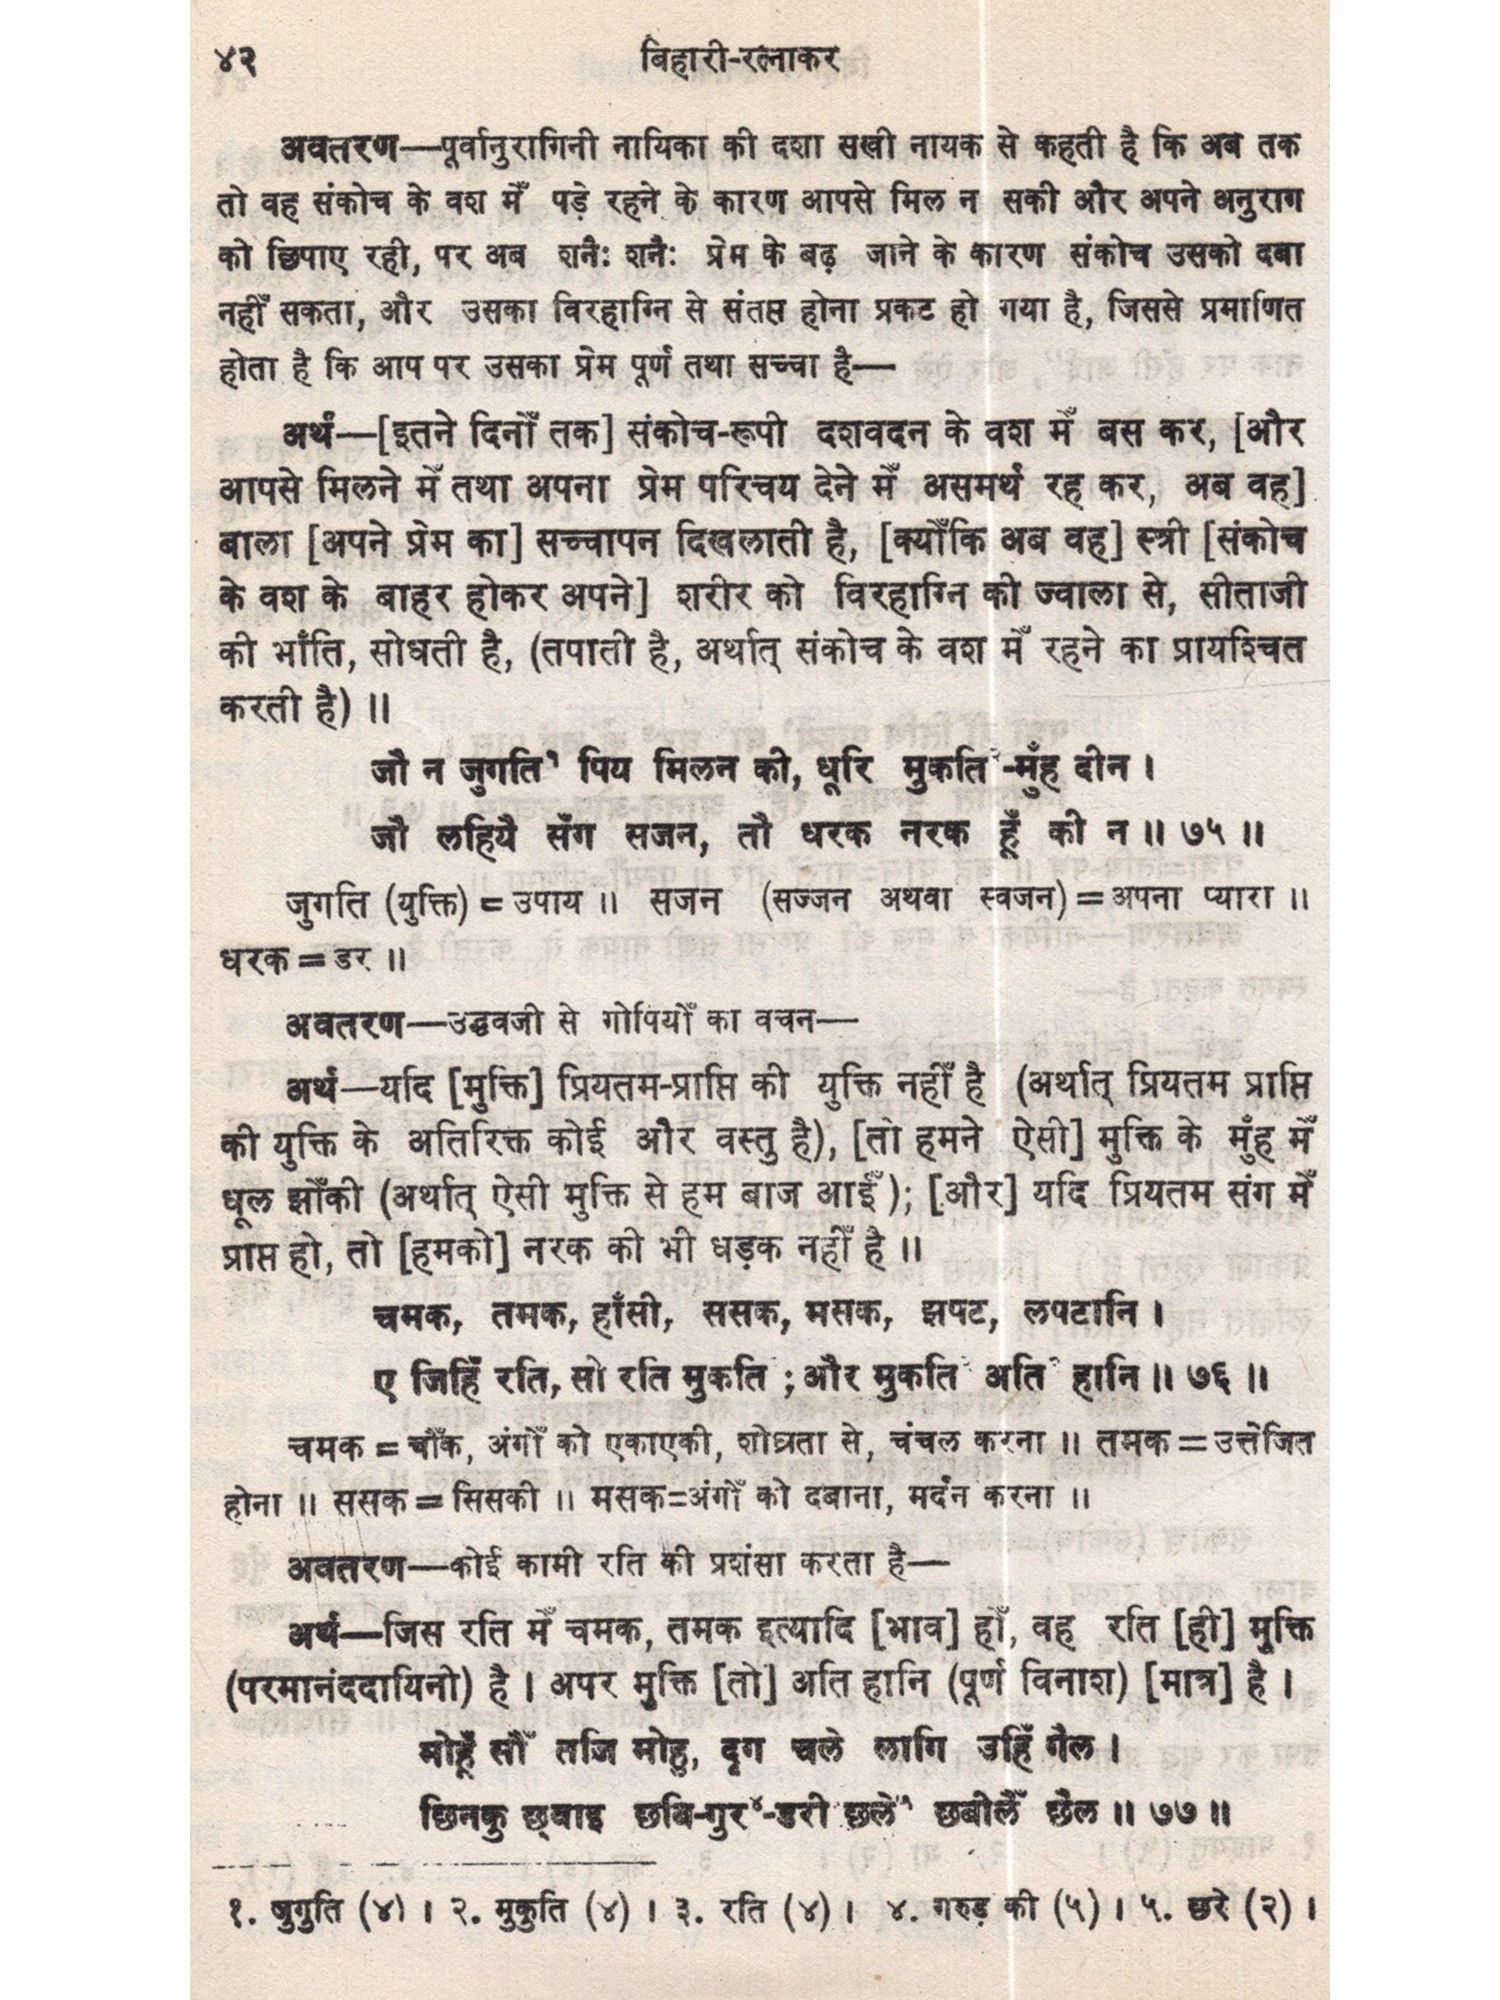 ४२
बिहारी-रत्नाकर
अवतरण—पूर्वानुरागिनी नायिका की दशा सखी नायक से कहती है कि अब तक
तो वह संकोच के वश मेँ पड़े रहने के कारण आपसे मिल न सकी और अपने अनुराग
को छिपाए रही, पर अब शनैः शनैः प्रेम के बढ़ जाने के कारण संकोच उसको दबा
नहीँ सकता, और उसका विरहाग्नि से संतप्त होना प्रकट हो गया है, जिससे प्रमाणित
होता है कि आप पर उसका प्रेम पूर्ण तथा सच्चा है—
अर्थ—[इतने दिनोँ तक] संकोच-रूपी दशवदन के वश मेँ बस कर, [और
आपसे मिलने मेँ तथा अपना प्रेम परिचय देने मेँ असमर्थ रह कर, अब वह]
बाला [अपने प्रेम का] सच्चापन दिखलाती है, [क्योँकि अब वह] स्त्री [संकोच
के वश के बाहर होकर अपने] शरीर को विरहाग्नि की ज्वाला से, सीताजी
की भाँति, सोधती है, (तपाती है, अर्थात् संकोच के वश मेँ रहने का प्रायश्चित
करती है) ॥
जौ न जुगति१ पिय मिलन की, धूरि मुकति२-मुँह दीन ।
जौ लहियै सँग सजन, तौ धरक नरक हूँ की न ॥ ७५ ॥
जुगति (युक्ति) = उपाय ॥ सजन (सज्जन अथवा स्वजन) = अपना प्यारा ॥
धरक = डर ॥
अवतरण—उद्धवजी से गोपियोँ का वचन—
अर्थ—यदि [मुक्ति] प्रियतम-प्राप्ति की युक्ति नहीँ है (अर्थात् प्रियतम प्राप्ति
की युक्ति के अतिरिक्त कोई और वस्तु है), [तो हमने ऐसी] मुक्ति के मुँह मेँ
धूल झोँकी (अर्थात् ऐसी मुक्ति से हम बाज आईँ); [और] यदि प्रियतम संग मेँ
प्राप्त हो, तो [हमको] नरक की भी धड़क नहीँ है ॥
चमक, तमक, हाँसी, ससक, मसक, झपट, लपटानि ।
ए जिहिँ रति, सो रति मुकति ; और मुकति२ अति३ हानि ॥ ७६ ॥
चमक = चौँक, अंगोँ को एकाएकी, शीघ्रता से, चंचल करना ॥ तमक = उत्तेजित
होना ॥ ससक = सिसकी ॥ मसक=अंगोँ को दबाना, मर्दन करना ॥
अवतरण—कोई कामी रति की प्रशंसा करता है—
अर्थ—जिस रति मेँ चमक, तमक इत्यादि [भाव] होँ, वह रति [ही] मुक्ति
(परमानंददायिनी) है । अपर मुक्ति [तो] अति हानि (पूर्ण विनाश) [मात्र] है ।
मोहूँ सौँ तजि मोहु, दृग चले लागि उहिँ गैल ।
छिनकु छ्वाइ छबि-गुर४-डरी छले५ छबीलेँ छैल ॥ ७७ ॥
१. जुगुति (४) । २. मुकुति (४) । ३. रति (४) । ४. गरुड़ की (५) । ५. छरे (२) ।